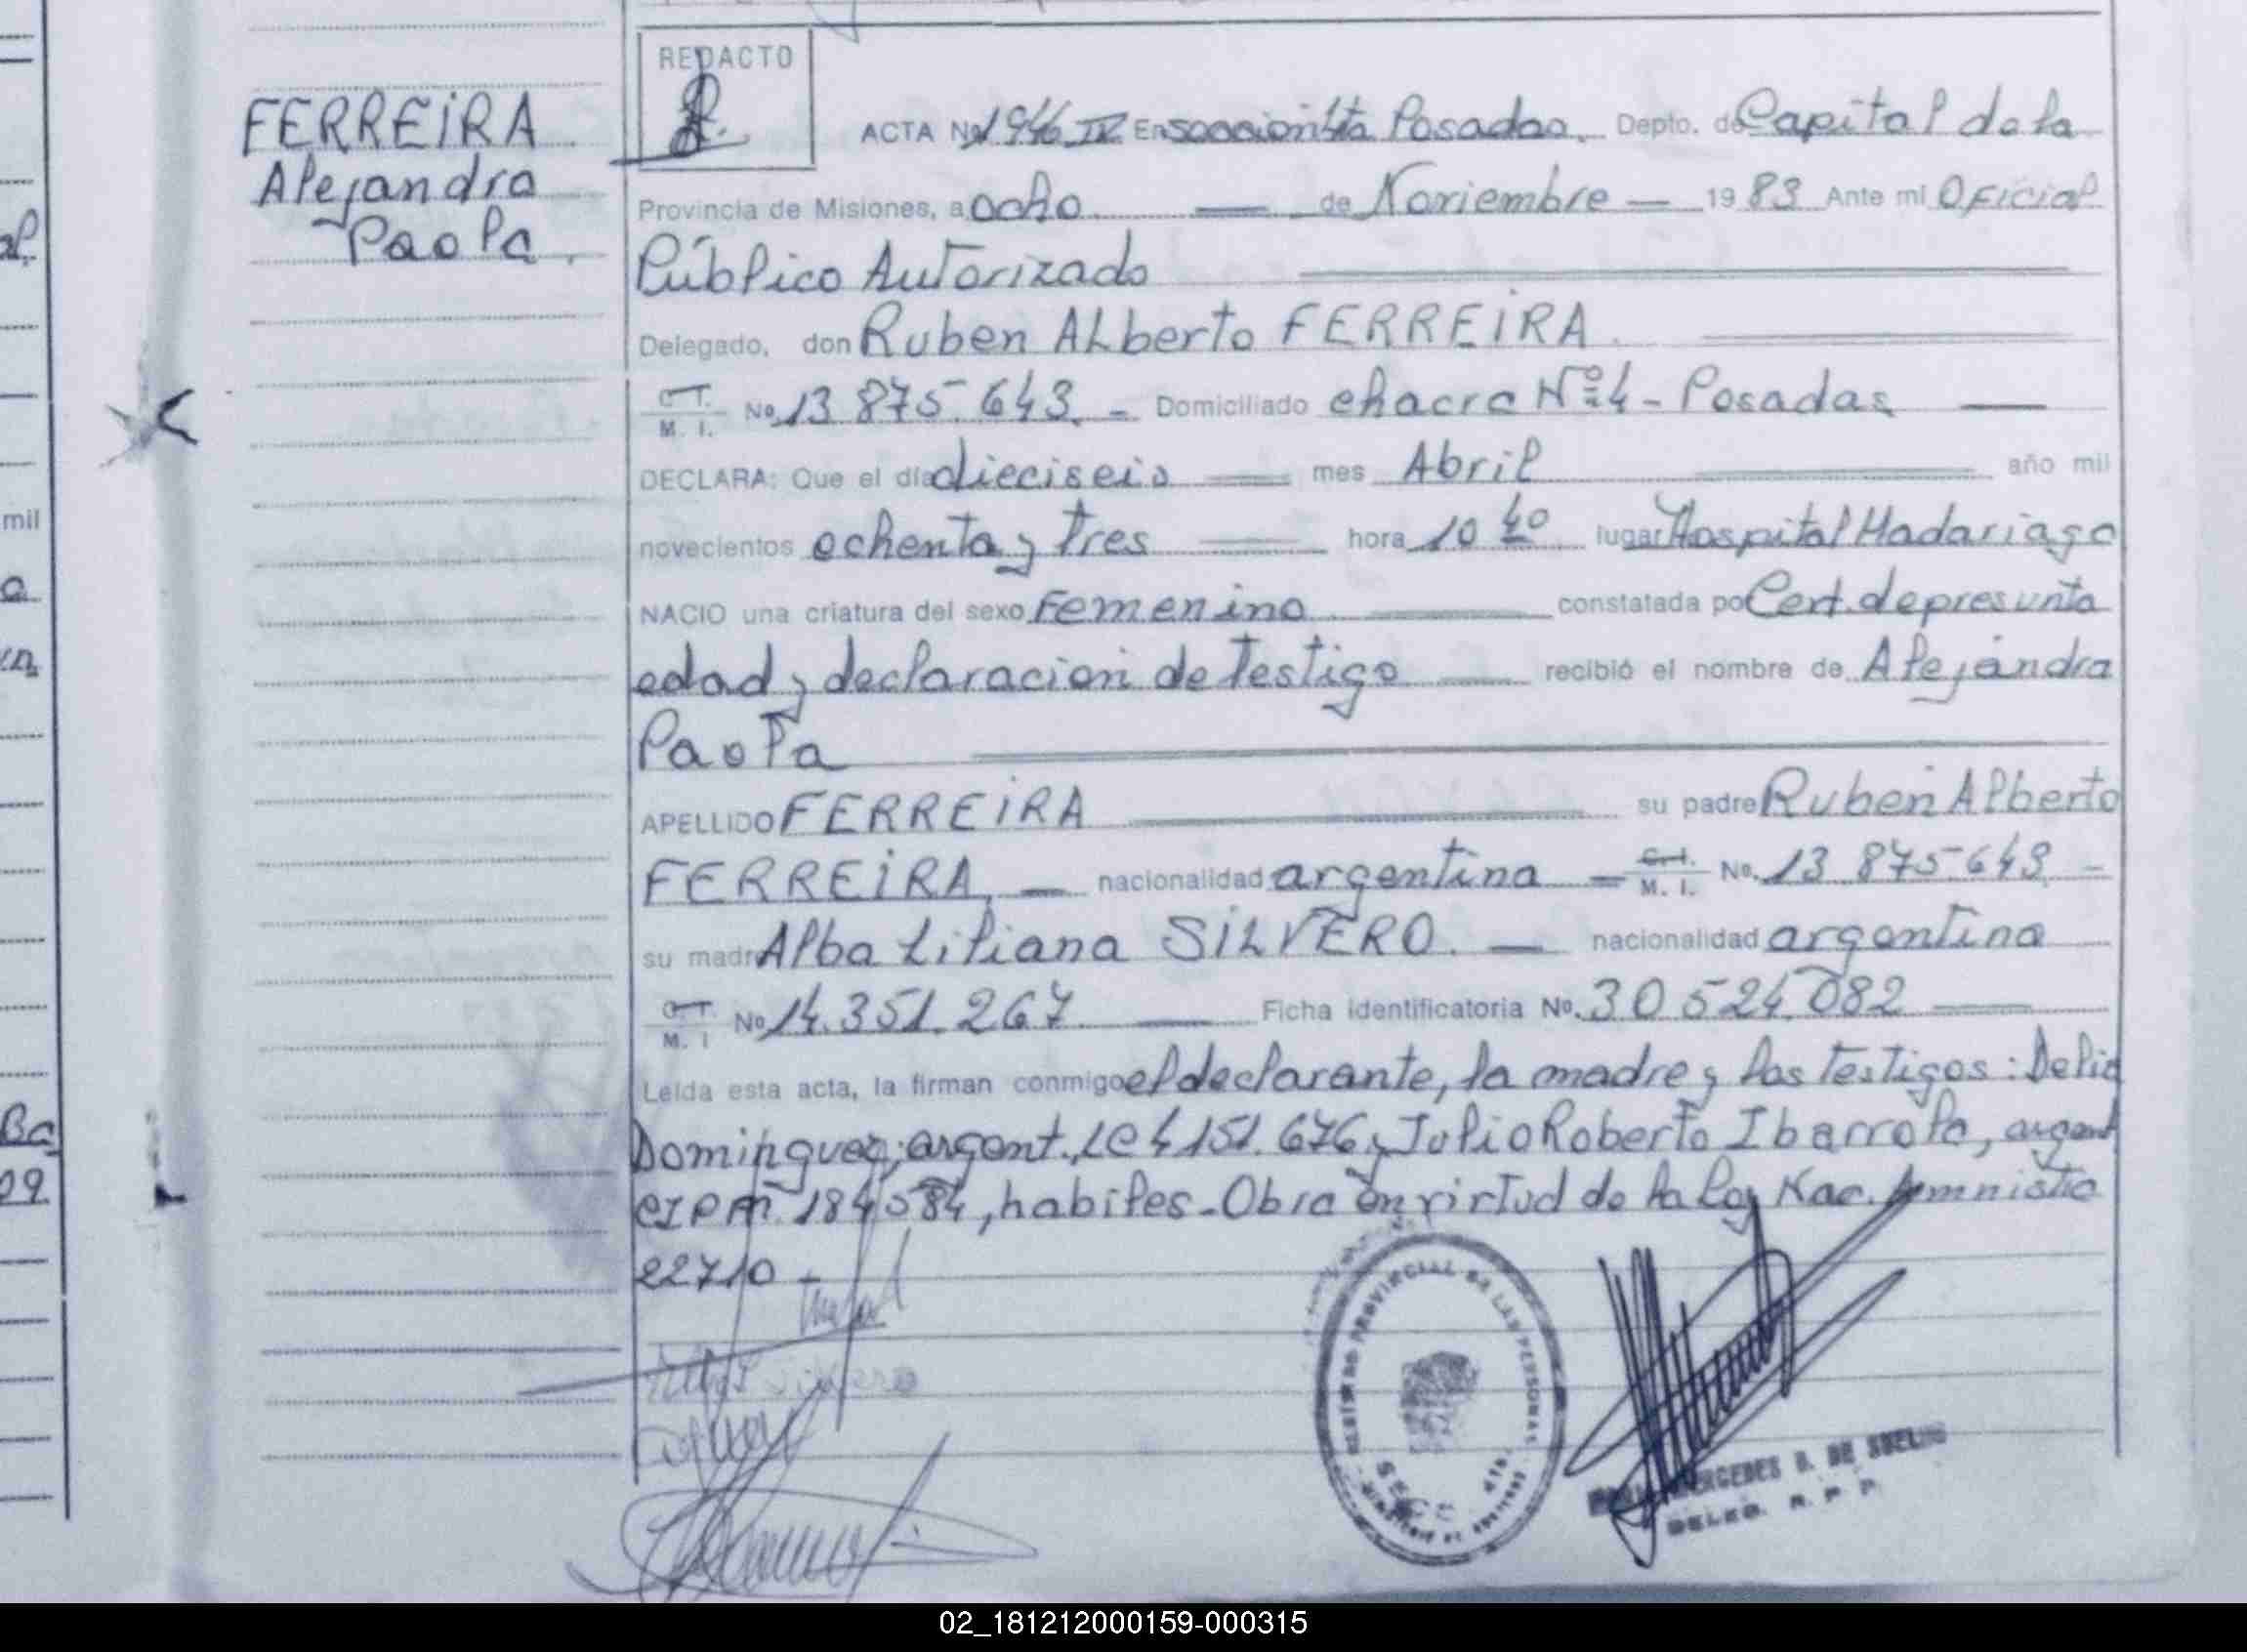 REDACTO
FERREIRA
Alejandra
Paola.
ACTA No 1946 IV En sección 1ta Posadas. Depto. de Capital de la
Provincia de Misiones, a ocho de Noviembre 1983 Ante mi Oficial
Público Autorizado
Delegado, don Ruben Alberto FERREIRA.
C.I. M. I. No 13 875.643. - Domiciliado chacra Nº 4 - Posadas
DECLARA: Que el día dieciseis mes Abril año mil
novecientos ochenta y tres hora 10 40 lugar Hospital Madariaga
NACIO una criatura del sexo Femenino constatada por Cert. de presunta
edad y declaracion de testigo recibió el nombre de Alejandra
Paola
APELLIDO FERREIRA su padre Ruben Alberto
FERREIRA nacionalidad argentina C.I. M. I. No. 13 875.643 -
su madre Alba Liliana SILVERO. nacionalidad argentina
C.I. M. I No 14.351.267 Ficha identificatoria No. 30 524.082
Leída esta acta, la firman conmigo el declarante, la madre y los testigos: Delia
Dominguez, argent., LC 4 151.676 y Julio Roberto Ibarrola, argent
CIPM. 184584, habiles - Obra en virtud de la Ley Nac. Amnistia
22710 -
REGISTRO PROVINCIAL DE LAS PERSONAS
MERCEDES D. DE
DELEG. R. P. P.
mil
Ba
09
02_181212000159-000315